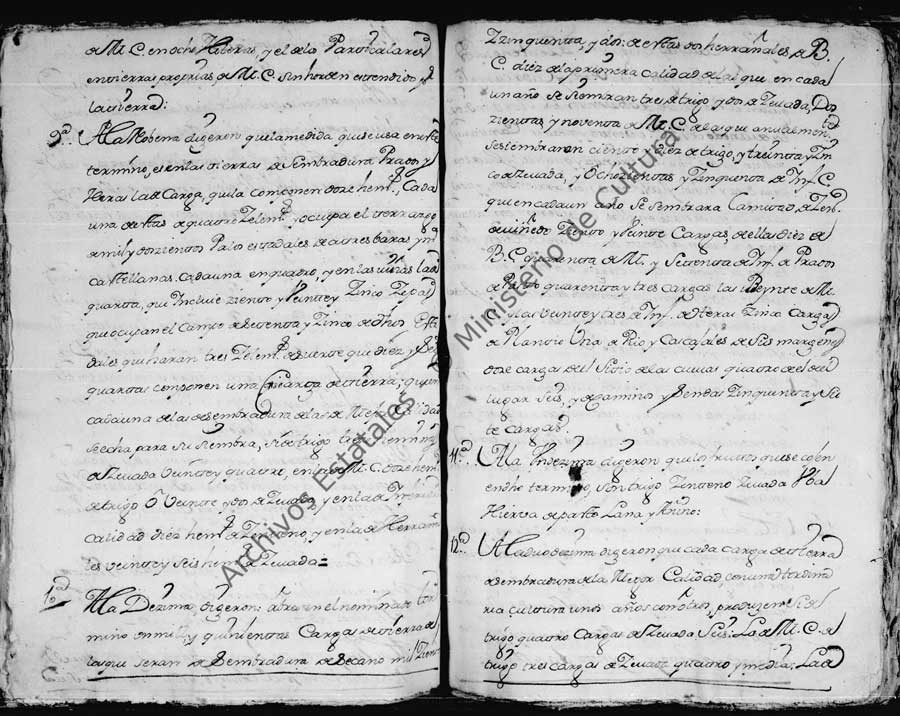 de M. C. en ocho Heteras, y el de los Particulares
en tierras proprias, de M. C. sin horden estendido por
la tierra:
9ª. A la Nobena digeron que la medida que se usa en este
termino, es en las tierras de Sembradura Prados y
Heras la de Carga, que la componen doze hem.s, Cada
una de estas de quatro Zelem.s, ocupa el terrazgo
de mil y dozientos Palos estadales de a tres baras y mª
castellanas cada una en quadro, y en las viñas la de
quarta, que Incluie ziento y Veinte y Zinco Zepas
que ocupan el Campo de setenta y Zinco de dhos Esta
dales que haran tres Zelem.s de suerte que diez y seis
quartas componen una Carga de tierra; que en
cada una de las de sembradura de las de Mejor Calidad
se echa para su siembra, si es de trigo
de Zevada Veinte y quatro, en la de M. C. doze hem.s
de trigo ô Veinte y dos de Zevada, y en la de Inferior
Calidad diez hem.s de Zenteno, y en la de Herrañ
les veinte y seis hem.s de Zevada =
10ª A la Dezima, digeron: abra en el nominado ter
mino dos mill, y quinientas Cargas de tierra de
las que seran de Sembradura de Secano mil Zient
Zinquenta, y dos: de estas dos herrañales, de B.
C. diez de la primera calidad de la que en cada
un año se siembran tres de trigo y dos de Zevada, Do
zientas y noventa de M. C. de las que anualmen
se siembran ciento y diez de trigo, y treinta y Zin
co de Zevada, y Ochozientas y Zinquenta de Inf. C.
que en cada un año se sembrara la mitad de Zen.
de viñedo Ziento y Veinte Cargas, de ellas diez de
B. C. quarenta de M. y Setenta de Inf. de Prados
de Pasto quarenta y tres cargas las Veynte de M.
y las Veinte y tres de Inf. de Heras Zinco Cargas
de Plantio Una de Rio y Cascajales de sus margenes
doze cargas del Sitio de las cuevas quatro del del
lugar Seis, y de Caminos y Sendas Zinquenta y Sie
te cargas.
11ª. A la Undezima digeron que los frutos que se cojen
en dho termino, son trigo Zenteno Zevada Vba
Hierva de pasto Lana y Añino:
12ª. A la duodezima digeron que cada carga de tierra
de sembradura de la Mejor Calidad, con una hordina
ria cultura unos años con otros, produzen Si es de
trigo quatro Cargas de Zevada Seis: La de M. C. de
trigo tres cargas de Zevada quatro y media: La de
Archivos Estatales
Ministerio de Cultura